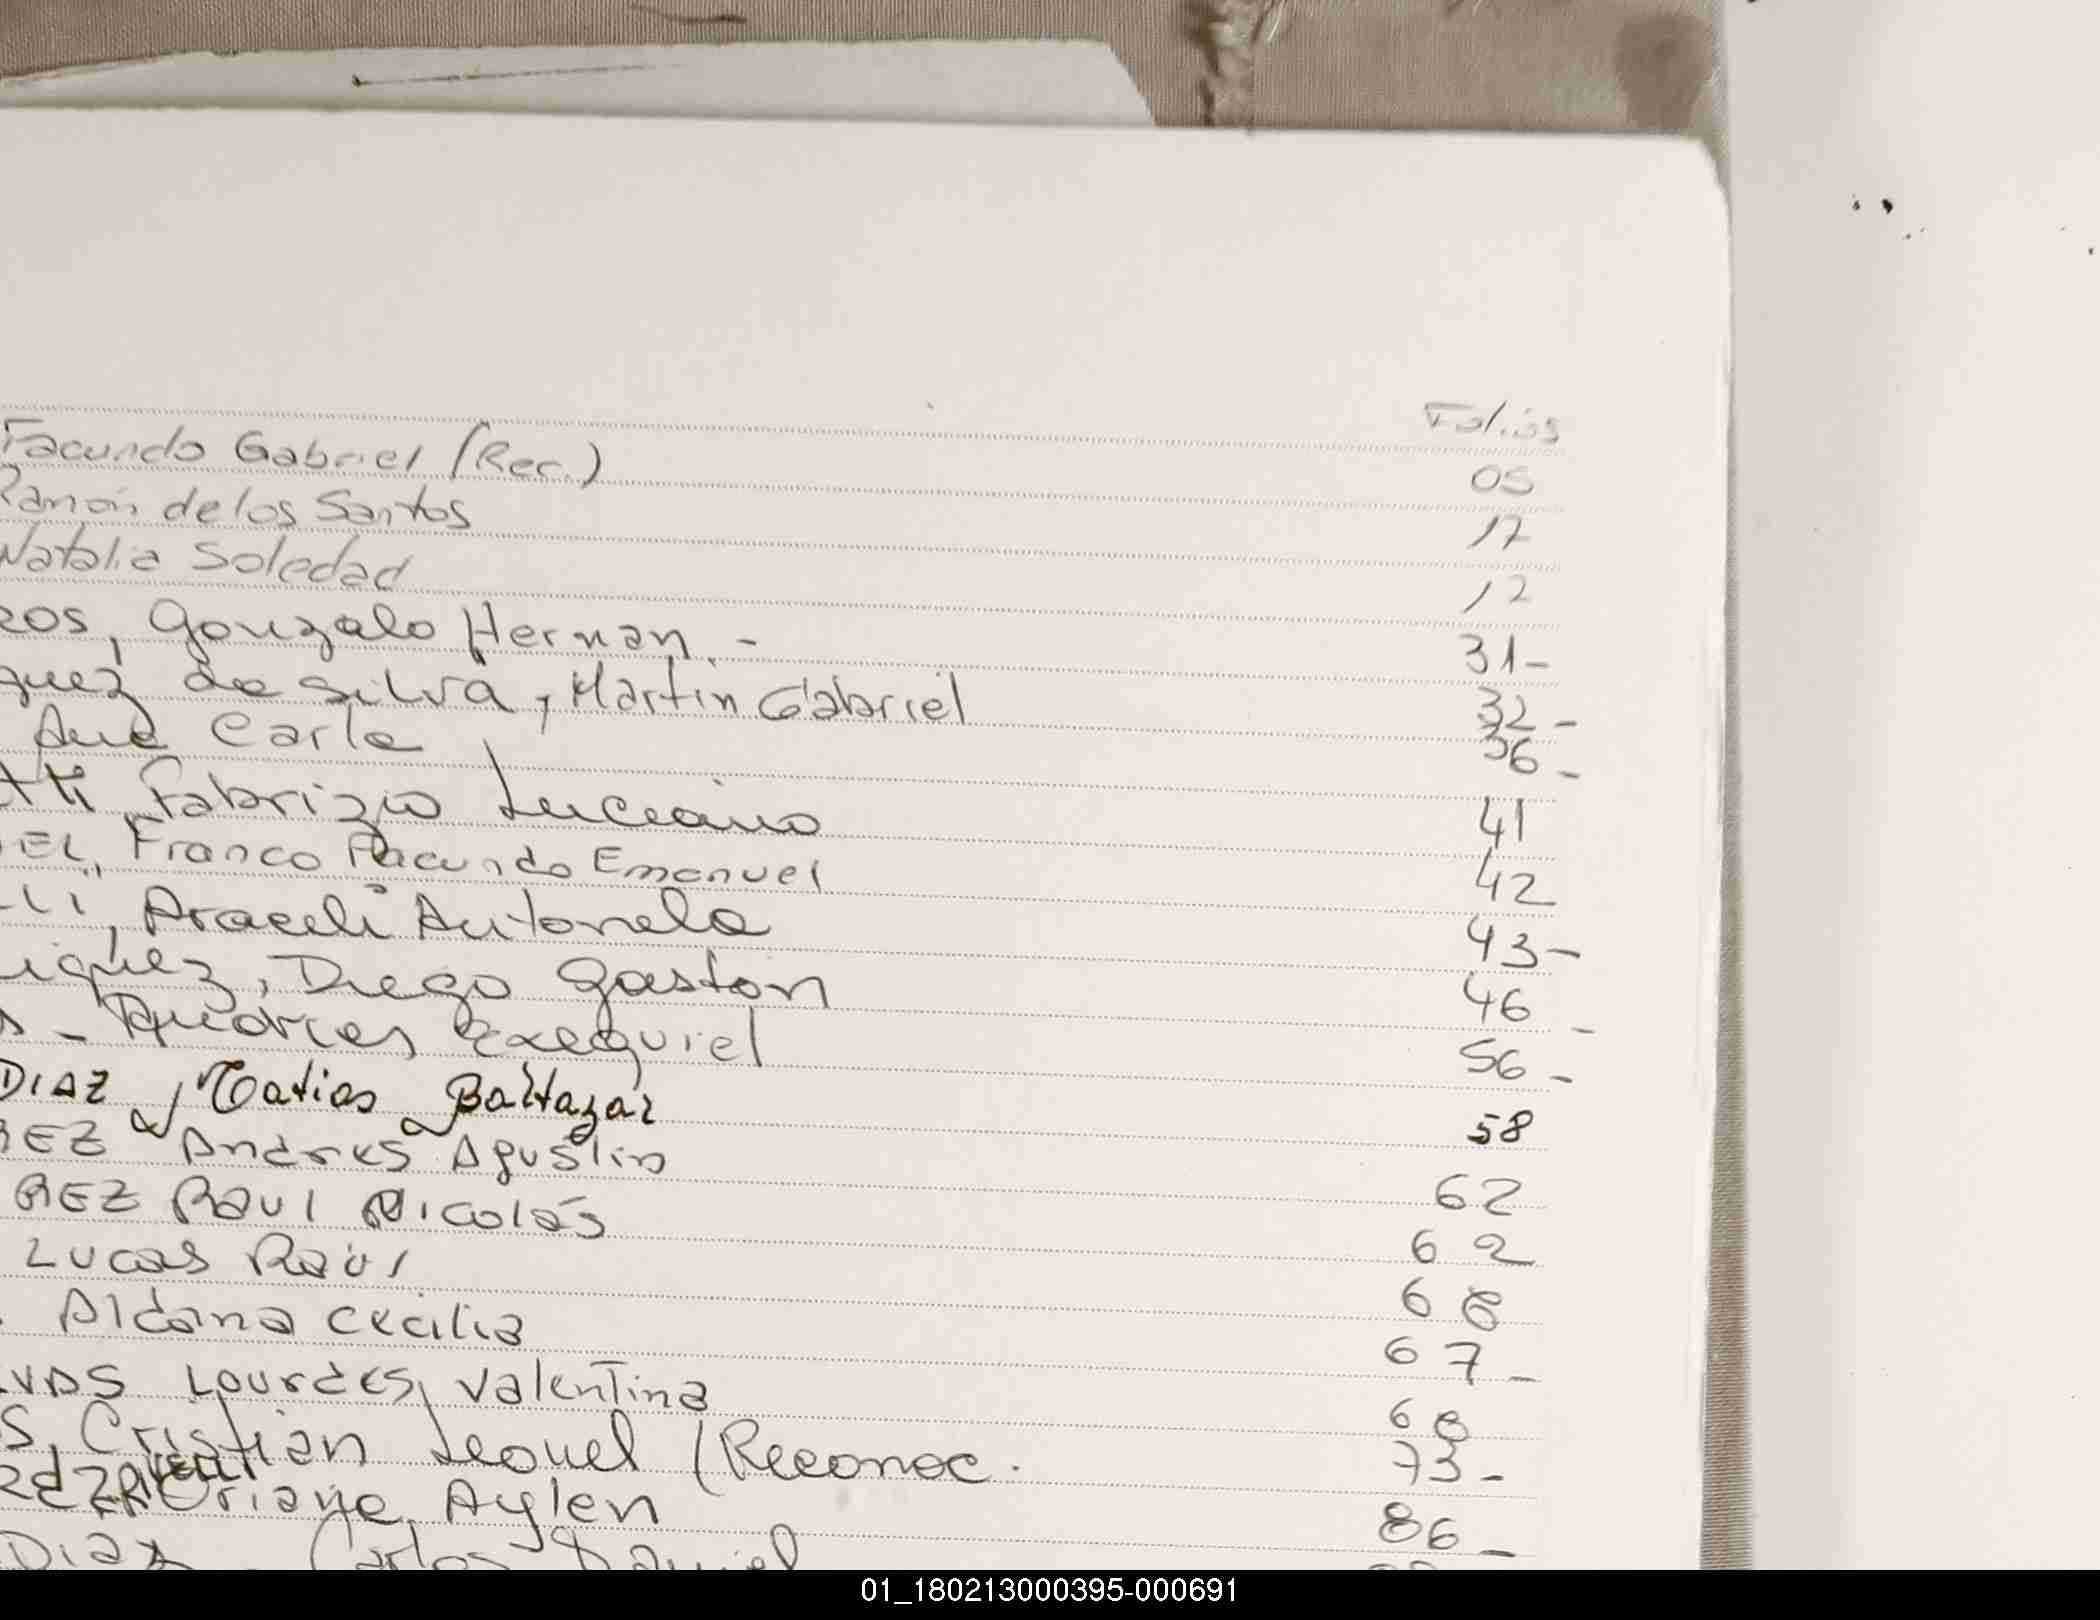 Folios
Facundo Gabriel (Rec.) 05
Ramón de los Santos 17
Natalia Soledad 12
ROS, Gonzalo Hernan. - 31-
guez da Silva, Martin Gabriel 32-
Ana Carla 36-
tti, Fabrizio Luciano 41
EL, Franco Facundo Emanuel 42
LLI, Araceli Antonela 43-
iguez, Diego Gaston 46-
s - Andres Exequiel 56-
DIAZ, Matias Baltazar 58
REZ Andres Agustin 62
REZ Raul Nicolás 62
Lucas Raúl 66
Aldana Cecilia 67-
Lourdes Valentina 68
S, Cristian Leonel (Reconoc. 73-
Oriana Aylen 86-
Diaz Carlos Daniel
01_180213000395-000691